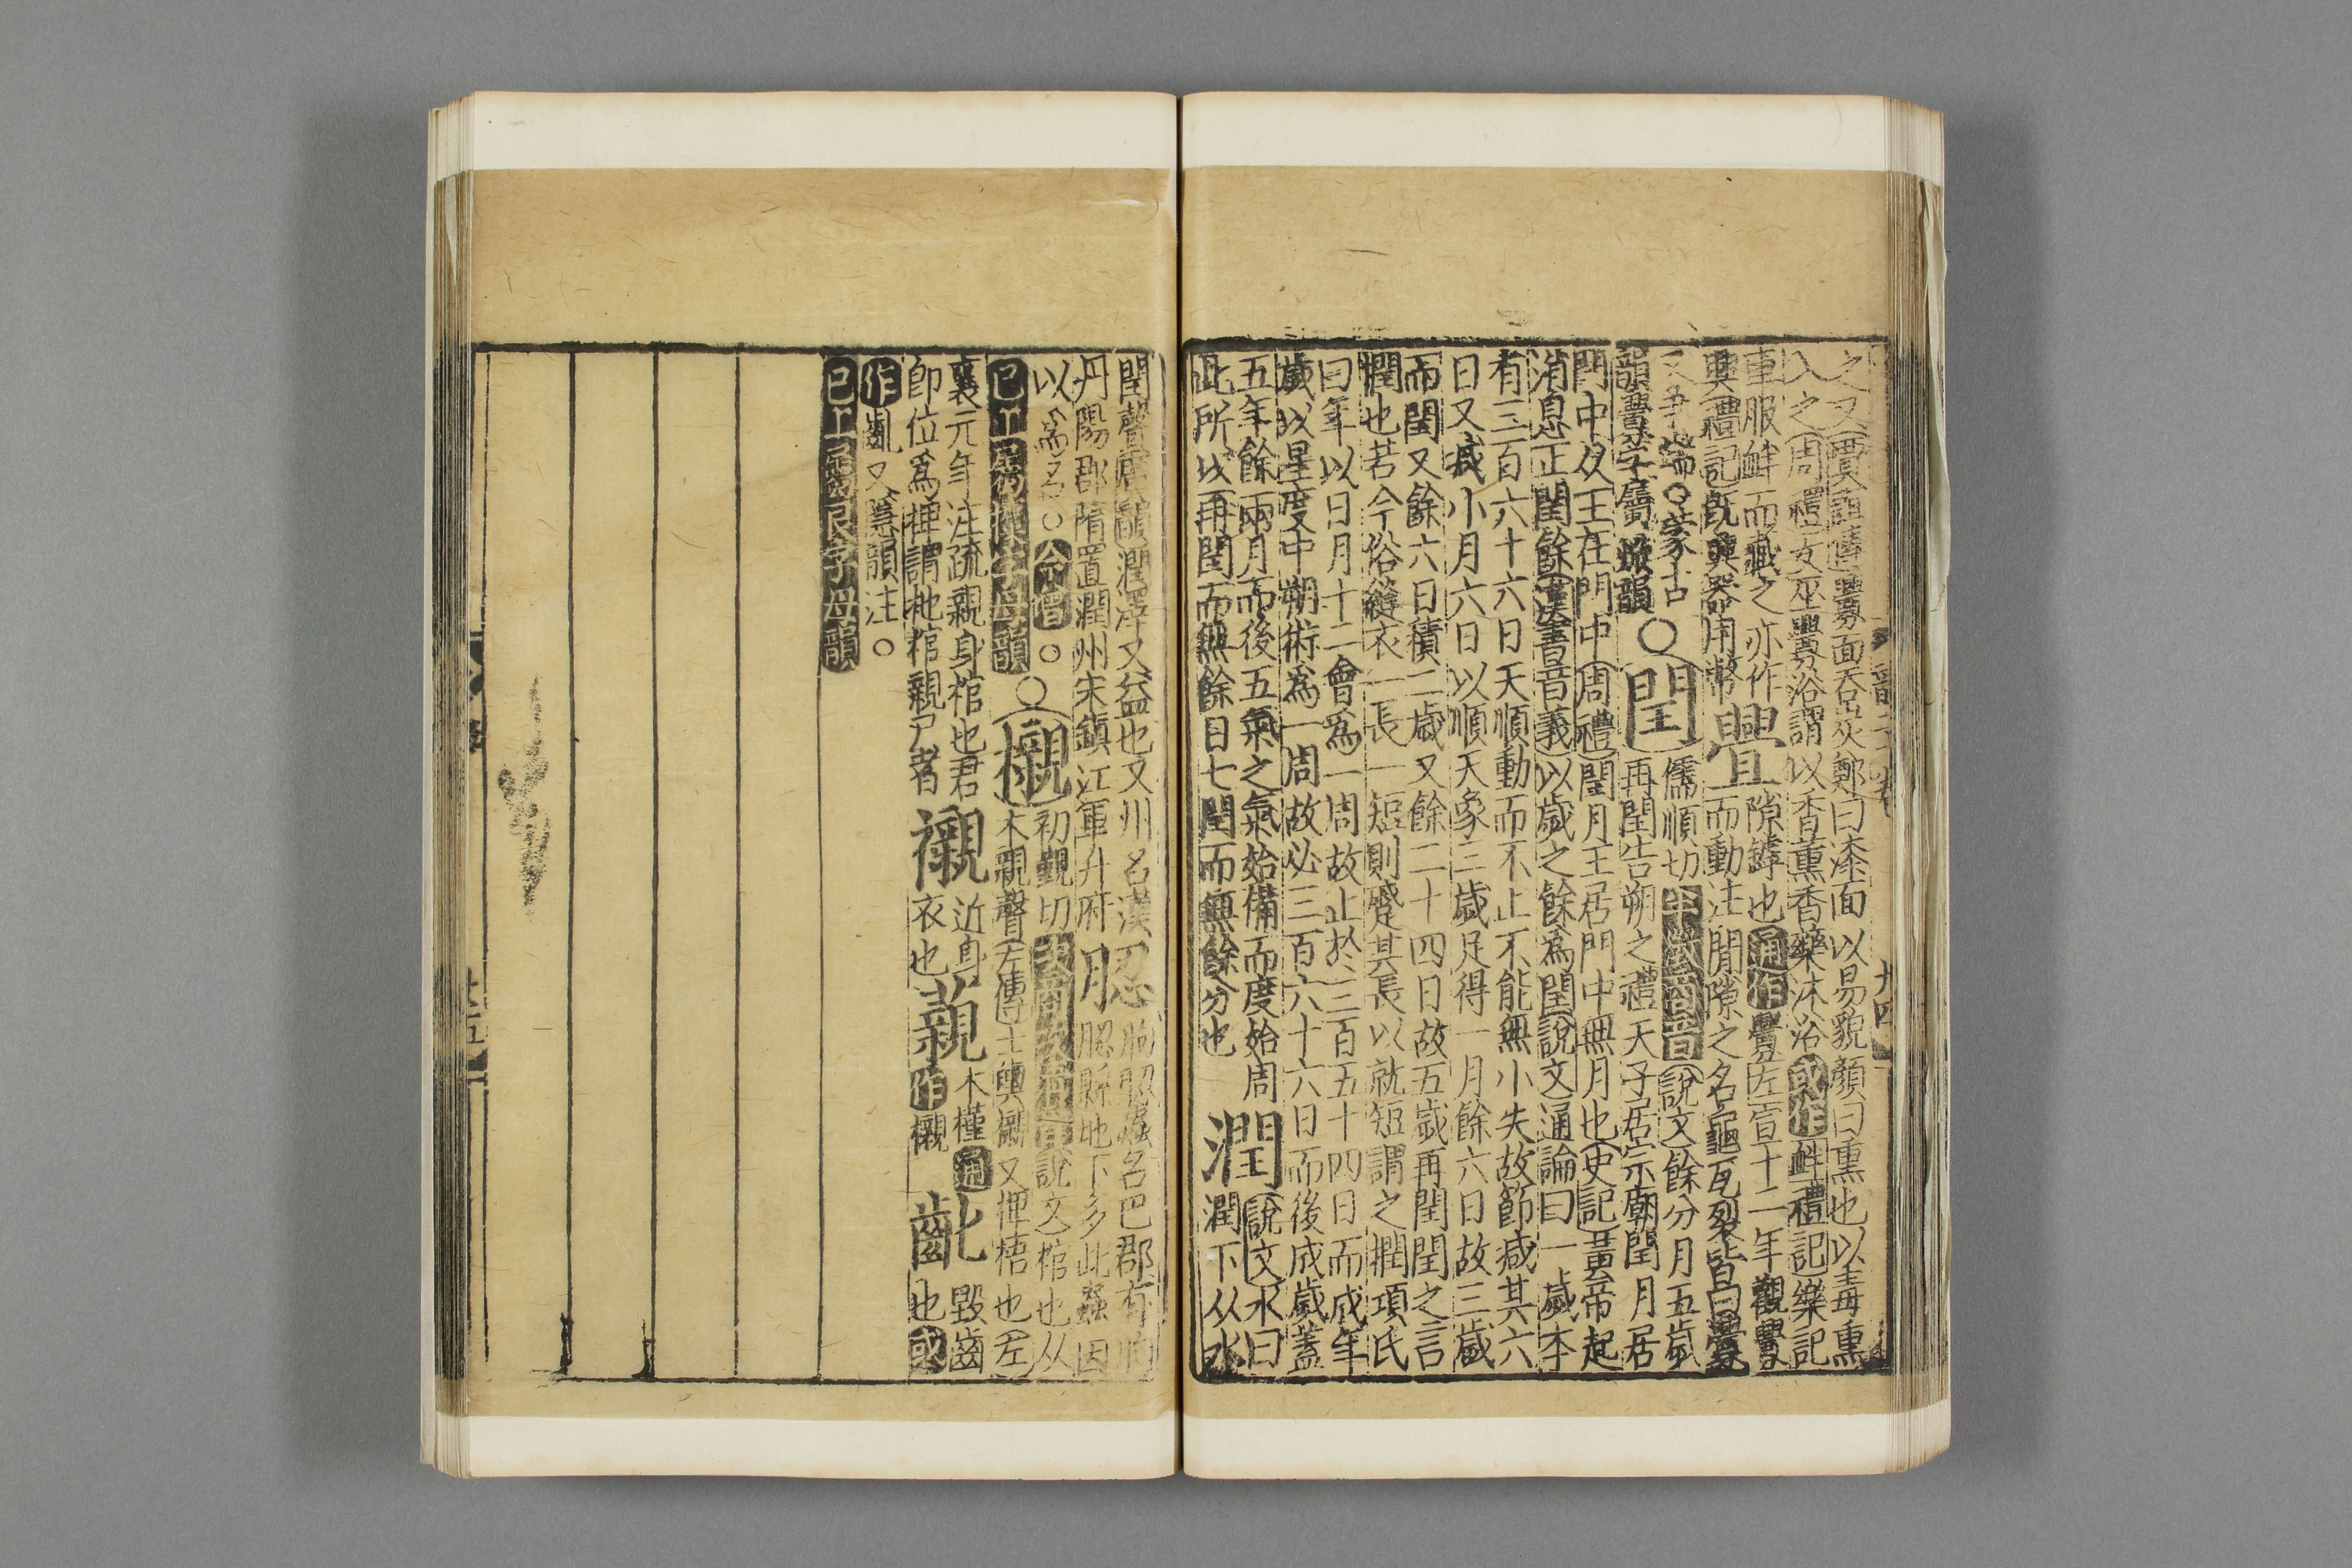 之又賈誼傳舋面吞炭鄭曰漆面以易貌顏曰熏也以毒熏
入之周禮女巫舋浴謂以香薰香藥沐浴或作衅禮記樂記
車服衅而藏之亦作
舋
隙罅也通作釁左宣十二年觀釁
而動注間隙之名龜瓦裂皆曰舋
典禮記既興器用幣
韻舋字廣焮韻
○
閏
儒順切半徵商音說文餘分月五歲
再閏告朔之禮天子居宗廟閏月居
門中从王在門中周禮閏月王居門中無月也史記黃帝起
消息正閏餘漢書音義以歲之餘為閏說文通論曰一歲本
有三百六十六日天順動而不止不能無小失故節減其六
日又減小月六日以順天象三歲足得一月餘六日故三歲
而閏又餘六日積二歲又餘二十四日故五歲再閏閏之言
撋也若今俗縫衣一長一短則蹙其長以就短謂之撋項氏
曰年以日月十二會為一周故止於三百五十四日而成年
歲以星度中朔術為一周故必三百六十六日而後成歲蓋
五年餘兩月而後五氣之氣始備而度始周
此所以再閏而無餘日七閏而無餘分也
潤
說文水曰
潤下从水
閏聲廣韻潤澤又益也又州名漢
丹陽郡隋置潤州宋鎮江軍升府
䏰
朐䏰蟲名巴郡有朐
䏰縣地下多此蟲因
以為名○今僧○
已上 字母韻
○
櫬
初覲切次商次音說文棺也从
木親聲左傳士輿櫬又椑梧也左
襄元年注疏親身棺也君
即位為椑謂杝棺親尸者
襯
近身
衣也
藽
木槿通
作櫬
齔
毀齒
也或
作齓又隱韻注○
已上 字母韻